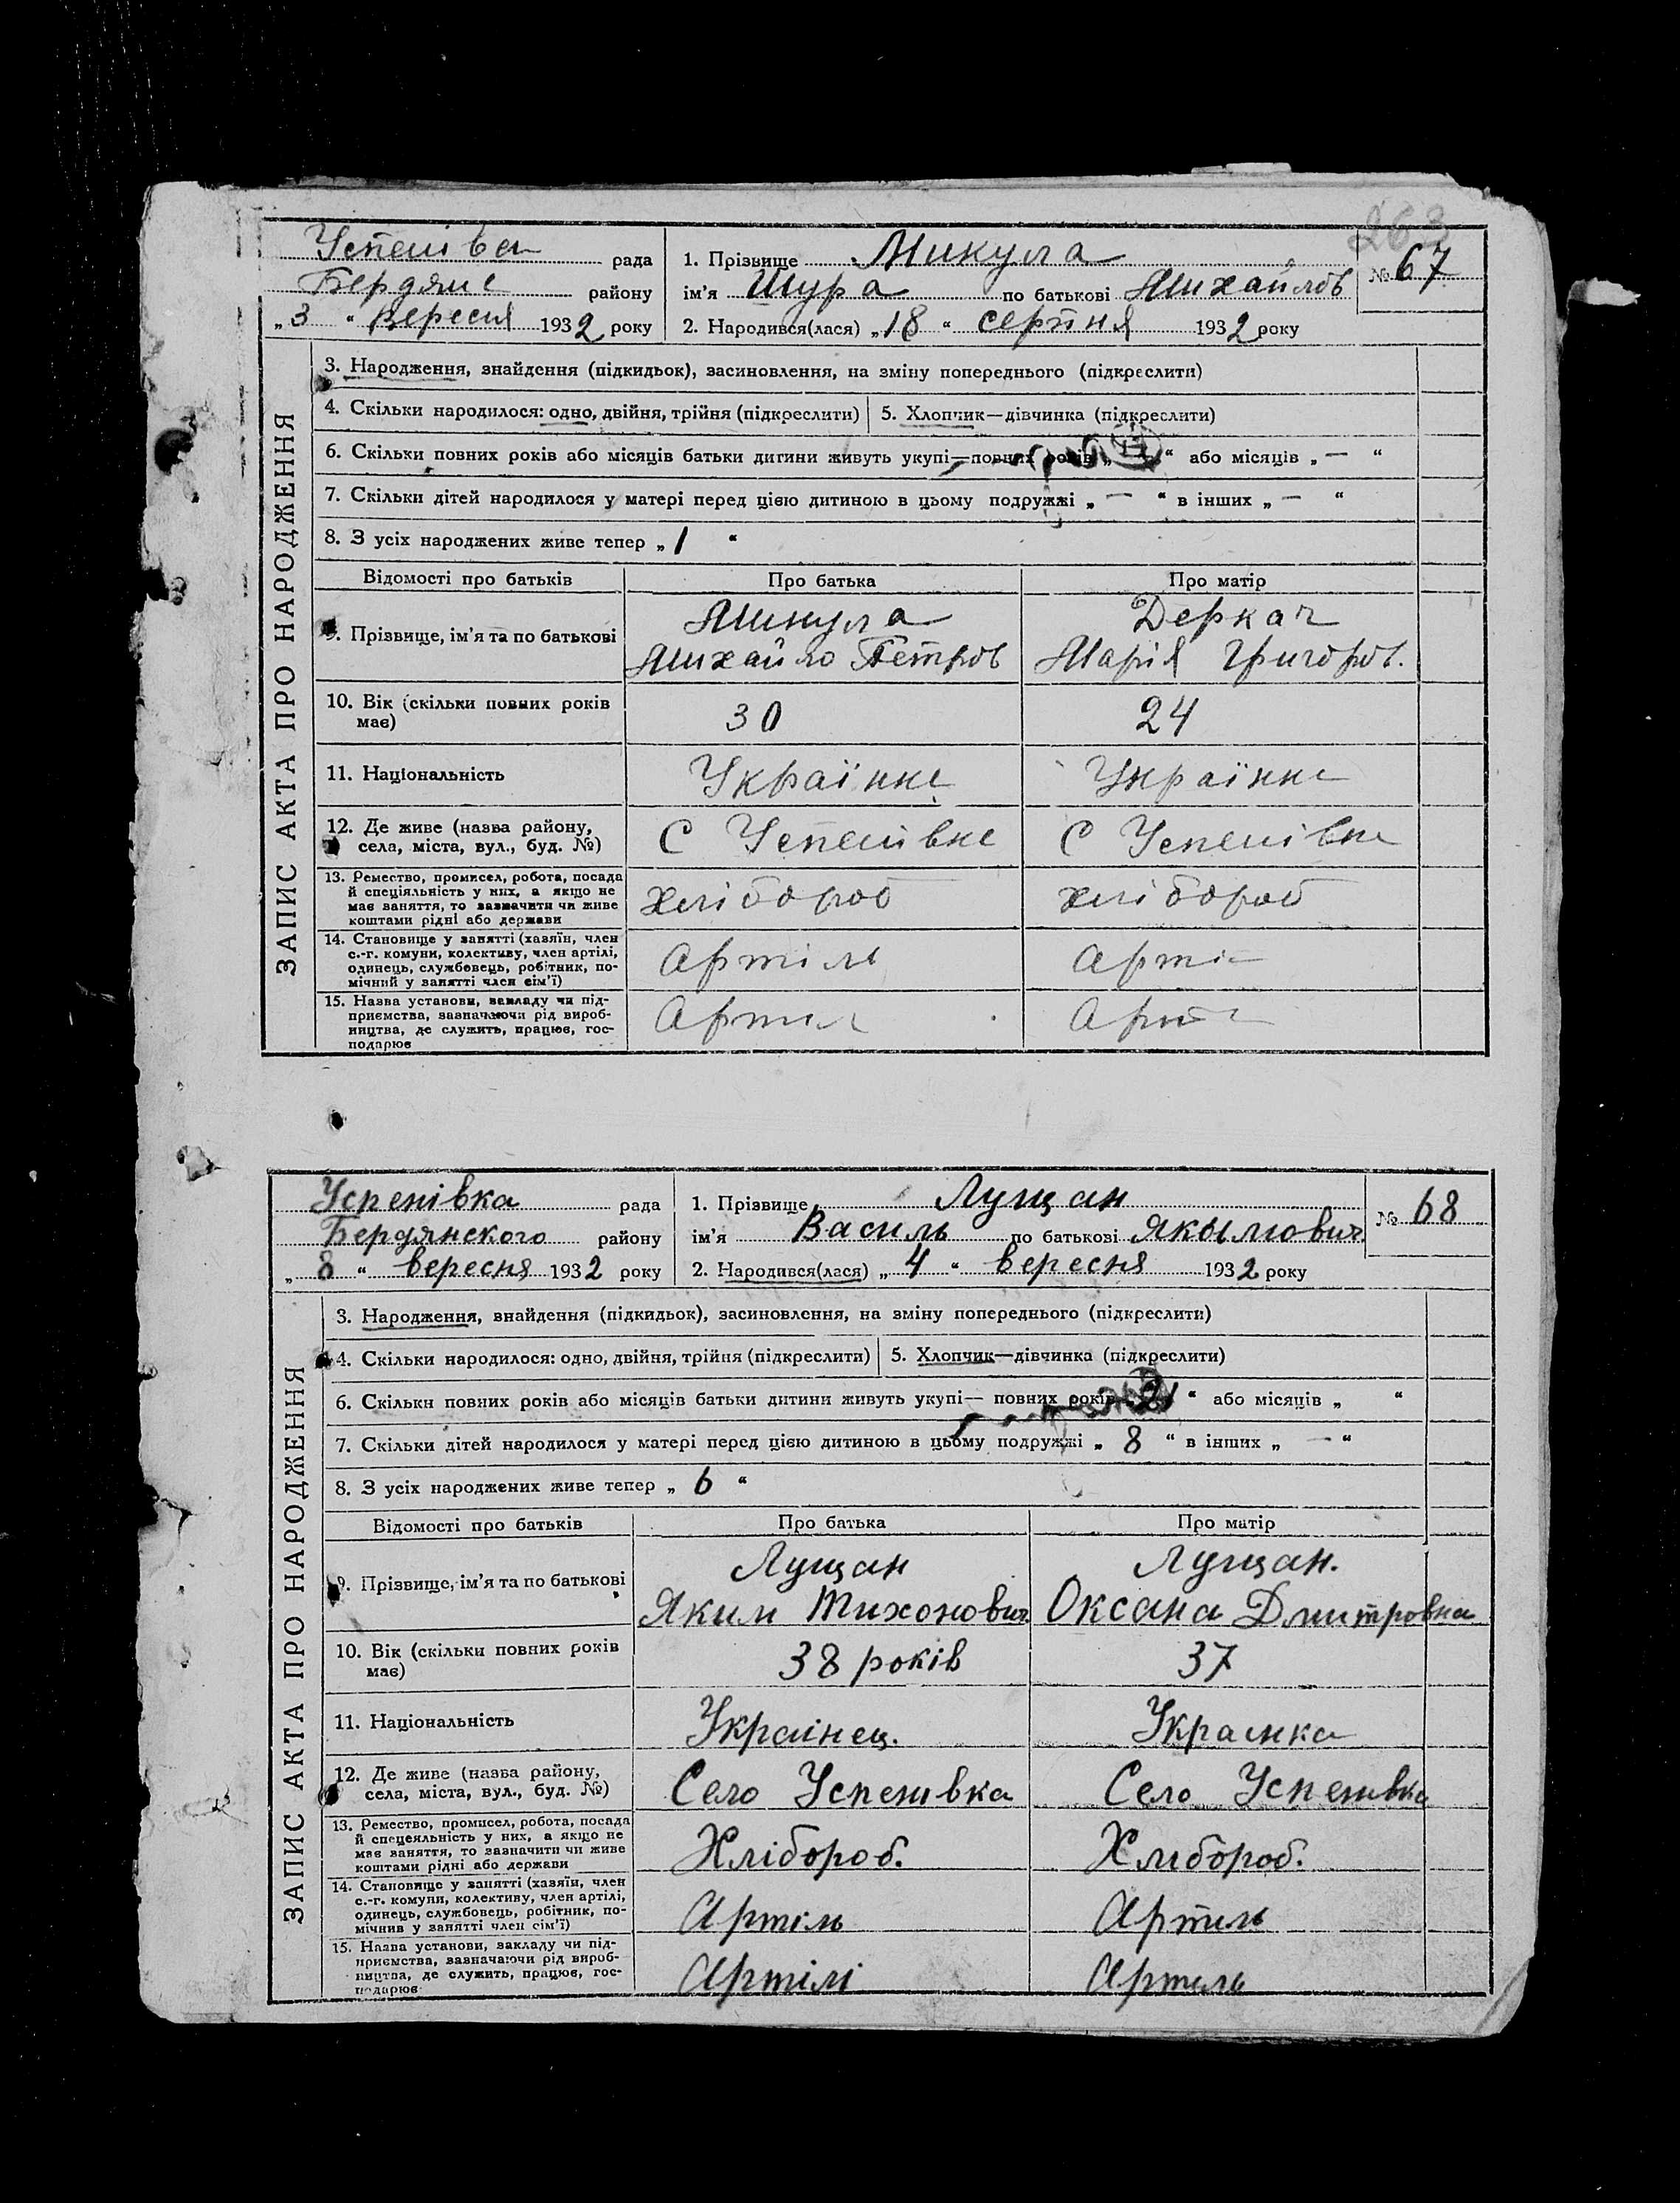 263
Успенівка рада
Бердянс району
„3“ Вересня 1932 року
1. Прізвище Микула
ім'я Шура по батькові Михайлов
№ 67
2. Народився(лася) „18“ серпня 1932 року
ЗАПИС АКТА ПРО НАРОДЖЕННЯ
3. Народження, знайдення (підкидьок), засиновлення, на зміну попереднього (підкреслити)
4. Скільки народилося: одно, двійня, трійня (підкреслити)
5. Хлопчик—дівчинка (підкреслити)
6. Скільки повних років або місяців батьки дитини живуть укупі—повних років „ “ або місяців „ — “
7. Скільки дітей народилося у матері перед цією дитиною в цьому подружжі „ — “ в інших „ — “
8. З усіх народжених живе тепер „ 1 “
Відомості про батьків Про батька Про матір
9. Прізвище, ім'я та по батькові
Микула
Михайло Петров
Деркач
Марія Григоров.
10. Вік (скільки повних років
має)
30 24
11. Національність Українка Українка
12. Де живе (назва району,
села, міста, вул., буд. №)
С Успенівка С Успенівка
13. Ремество, промисел, робота, посада
й спеціяльність у них, а якщо не
має заняття, то зазначити чи живе
коштами рідні або держави
хлібороб хлібороб
14. Становище у занятті (хазяїн, член
с.-г. комуни, колективу, член артілі,
одинець, службовець, робітник, по-
мічний у занятті член сім'ї)
Артіль Арті
15. Назва установи, закладу чи під-
приємства, зазначаючи рід вироб-
ництва, де служить, працює, гос-
подарює
Артіл Арті
Успенівка рада
Бердянского району
„ 8 “ вересня 1932 року
1. Прізвище Лущан
ім'я Василь по батькові Якымович
№ 68
2. Народився(лася) „ 4 “ вересня 1932 року
ЗАПИС АКТА ПРО НАРОДЖЕННЯ
3. Народження, знайдення (підкидьок), засиновлення, на зміну попереднього (підкреслити)
4. Скільки народилося: одно, двійня, трійня (підкреслити)
5. Хлопчик—дівчинка (підкреслити)
6. Скільки повних років або місяців батьки дитини живуть укупі— повних років „ “ або місяців „ “
7. Скільки дітей народилося у матері перед цією дитиною в цьому подружжі „ 8 “ в інших „ — “
8. З усіх народжених живе тепер „ 6 “
Відомості про батьків Про батька Про матір
9. Прізвище, ім'я та по батькові
Лущан
Яким Тихонович
Лущан.
Оксана Дмитровна
10. Вік (скільки повних років
має)
38 років 37
11. Національність Украінец. Украинка
12. Де живе (назва району,
села, міста, вул., буд. №)
Село Успенівка Село Успенівка
13. Ремество, промисел, робота, посада
й спецеяльність у них, а якщо не
має заняття, то зазначити чи живе
коштами рідні або держави
Хлібороб. Хлібороб.
14. Становище у занятті (хазяїн, член
с.-г. комуни, колективу, член артілі,
одинець, службовець, робітник, по-
мічнив у занятті член сім'ї)
Артіль Артиль
15. Назва установи, закладу чи під-
приємства, зазначаючи рід вироб-
ництва, де служить, працює, гос-
подарює
Артілі Артиль